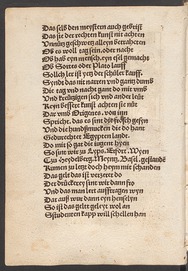 Das selb den meystern auch gebrist
Das sie der rechten kunst nit achten
Unnütz geschwetz alleyn betrachten
Ob es well tag sein oder nacht
Ob hab eyn mensch eyn esel gemacht
Ob Sortes oder Plato lauff
Sollch ler ist yetz der schůler kauff.
Syndt das nit narren und gantz dumb
Die tag und nacht gant do mit umb
Und krützigen sich und ander lüt
Keyn besser kunst achten sie nüt
Dar umb Origenes von inn
Spricht. das es sint die frösch gesyn
Und die hundsmucken die do hant
Gedurechtet Egypten landt.
Do mit so gat die iugent hyen
So sint wir zů Lyps. Erfort. Wyen
Zů Heydelberg. Mentz. Basel. gestanden
Kumen zů letst doch heym mit schanden
Das gelt das ist verzeret do
Der truckery sint wir dann fro
Und das man lert aufftragen wyn
Dar auß wirt dann eyn henselyn
So ist das gelt geleit wol an
Studenten kapp will schellen han